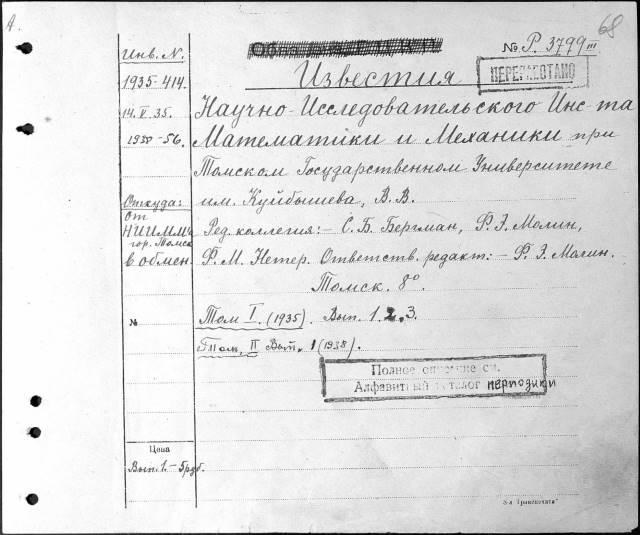 А.
68
Инв. N.
№ Р. 3799 III
ПЕРЕРАБОТАНО
1935-414.
Известия
14.V.35.
Научно-Исследовательского Инс-та
1938-56.
Математики и Механики при
Томском Государственном Университете
им. Куйбышева, В.В.
Откуда:
от
НИИММ
гор. Томск
в обмен.
Ред. коллегия:- С.Б. Бергман, Ф.Э. Молин,
Ф.М. Нетер. Ответств. редакт:- Ф.Э. Молин.
Томск. 8°.
№
Том I. (1935). Вып. 1. 2. 3.
Том, II Вып. 1 (1938).
Полное описание см.
Алфавитный каталог периодики
Цена
Вып. 1.-5руб.